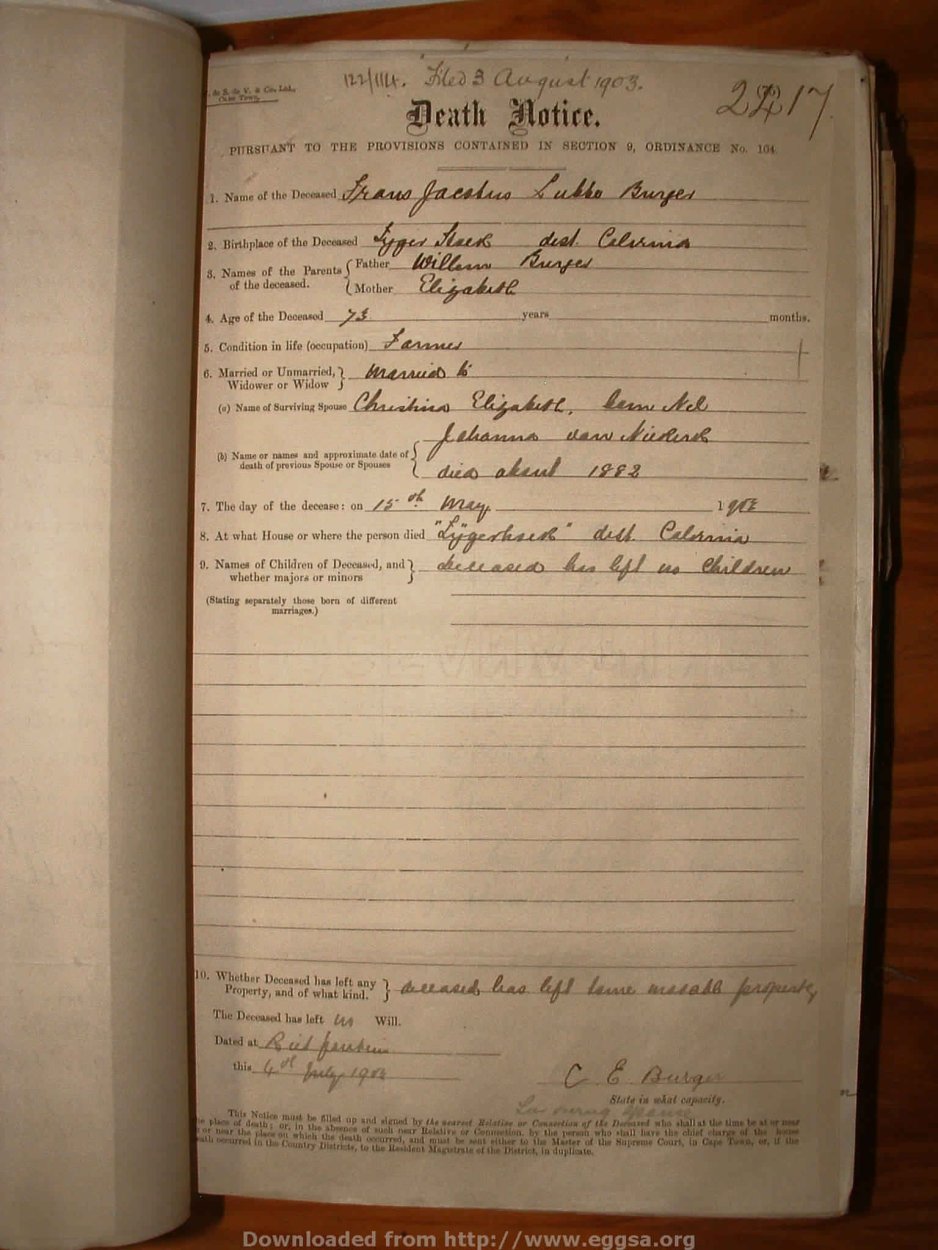 122/1114. Filed 3 August 1903.
2217
& S. de V. & Co., Ltd.,
Cape Town.
Death Notice.
PURSUANT TO THE PROVISIONS CONTAINED IN SECTION 9, ORDINANCE No. 104
1. Name of the Deceased Frans Jacobus Lubbo Burger
2. Birthplace of the Deceased Tyger Hoek dist. Calvinia
3. Names of the Parents of the deceased. Father Willem Burger
Mother Elizabeth
4. Age of the Deceased 73 years months.
5. Condition in life (occupation) Farmer
6. Married or Unmarried, Widower or Widow Married to
(a) Name of Surviving Spouse Christina Elizabeth, born Nel
Johanna van Niekerk
(b) Name or names and approximate date of death of previous Spouse or Spouses died about 1882
7. The day of the decease: on 15th May 1903
8. At what House or where the person died "Tygerhoek" dist. Calvinia
9. Names of Children of Deceased, and whether majors or minors deceased has left no Children
(Stating separately those born of different marriages.)
10. Whether Deceased has left any Property, and of what kind. deceased has left some movable property
The Deceased has left no Will.
Dated at Riet
this 4th July 1903
C E Burger
State in what capacity.
Surviving Spouse
This Notice must be filled up and signed by the nearest Relative or Connection of the Deceased who shall at the time be at or near
the place of death; or, in the absence of such near Relative or Connection, by the person who shall have the chief charge of the house
or near the place on which the death occurred, and must be sent either to the Master of the Supreme Court, in Cape Town, or, if the
death occurred in the Country Districts, to the Resident Magistrate of the District, in duplicate.
Downloaded from http://www.eggsa.org